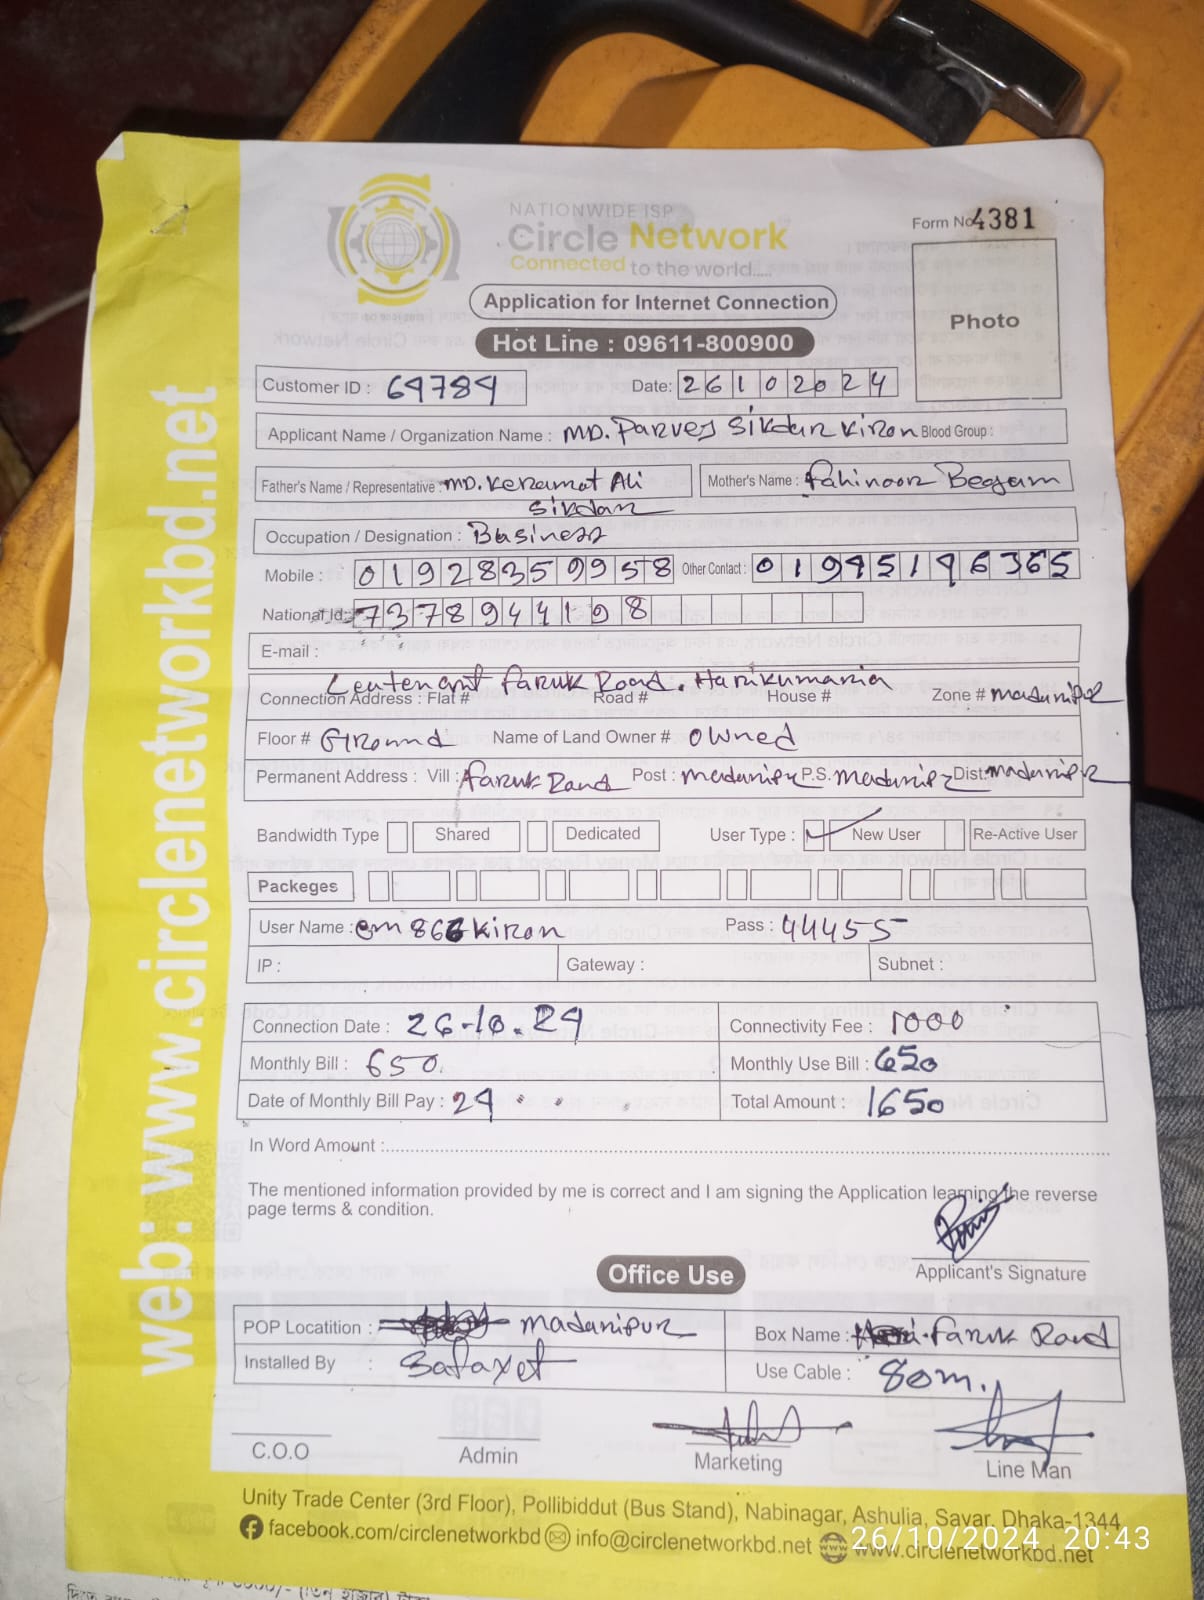 NATIONWIDE ISP
Circle Network
Connected to the world.....
Form No 4381
Photo
Application for Internet Connection
Hot Line : 09611-800900
Customer ID : 64784 Date: 26102024
Applicant Name / Organization Name : MD. Parvej Sikdar Kiron Blood Group :
Father's Name / Representative : MD. Keramat Ali Sikdar Mother's Name : Fahinoor Begum
Occupation / Designation : Business
Mobile : 01928359958 Other Contact : 01945196365
National Id: 7378944198
E-mail :
Leutenant Faruk Road. Harikumaria
Connection Address : Flat # Road # House # Zone # Madaripur
Floor # Ground Name of Land Owner # Owned
Permanent Address : Vill : Faruk Road Post : Madaripur P.S. Madaripur Dist: Madaripur
Bandwidth Type Shared Dedicated User Type : New User Re-Active User
Packeges
User Name : Kiron Pass : 44455
IP : Gateway : Subnet :
Connection Date : 26-10.24 Connectivity Fee : 1000
Monthly Bill : 650. Monthly Use Bill : 650
Date of Monthly Bill Pay : 24 Total Amount : 1650
In Word Amount :
The mentioned information provided by me is correct and I am signing the Application learning the reverse
page terms & condition.
Applicant's Signature
Office Use
POP Locatition : Madaripur Box Name : Faruk Road
Installed By : Safaxet Use Cable : 80m.
C.O.O Admin Marketing Line Man
Unity Trade Center (3rd Floor), Pollibiddut (Bus Stand), Nabinagar, Ashulia, Savar, Dhaka-1344
facebook.com/circlenetworkbd info@circlenetworkbd.net www.circlenetworkbd.net
26/10/2024 20:43
web: www.circlenetworkbd.net